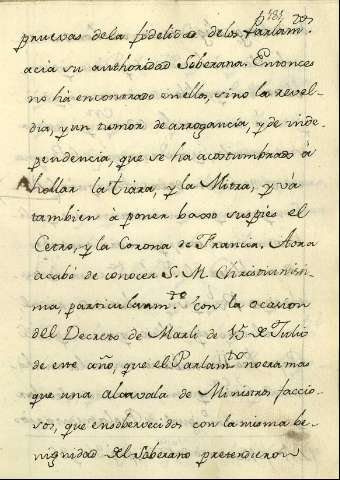 181
pruevas dela fidelidad delos Parlam.tos
acia su authoridad Soberana. Entonces
no há encontrado en ellos, sino la revel-
dia, y un tumor de arrogancia, y de inde-
pendencia, que se ha acostumbrado á
hollar la Tiara, y la Mitra, y vá
tambien à poner baxo sus pies el
Cetro, y la Corona de Francia. Aora
acabó de conocer S. M. Christianissi-
ma, particularm.te con la ocasion
del Decreto de Marli de 15 de Julio
de este año, que el Parlam.to no era mas
que una alcavala de Ministros faccio-
sos, que ensobervecidos con la misma be-
nignidad del Soberano pretendieron